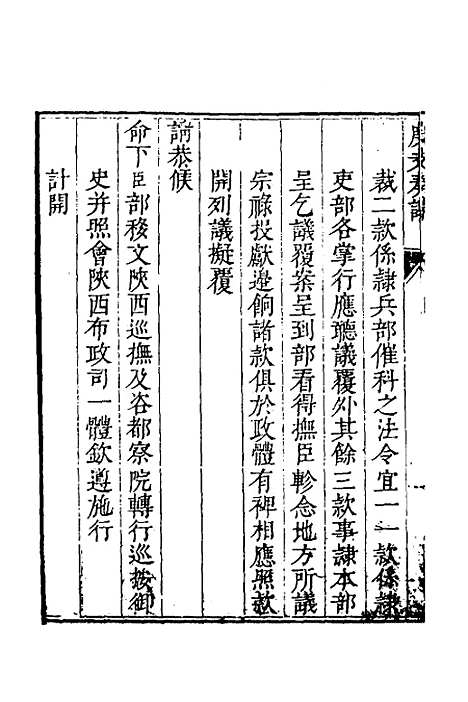 裁二款係隷兵部催科之法令宜一一款係隷
吏部各掌行應聽議覆外其餘三款事隷本部
呈乞議覆案呈到部看得撫臣軫念地方所議
宗祿投獻邉餉諸款俱於政體有裨相應照款
開列議擬覆
請恭候
命下臣部移文陝西巡撫及咨都察院轉行巡按御
史并照會陝西布政司一體欽遵施行
計開